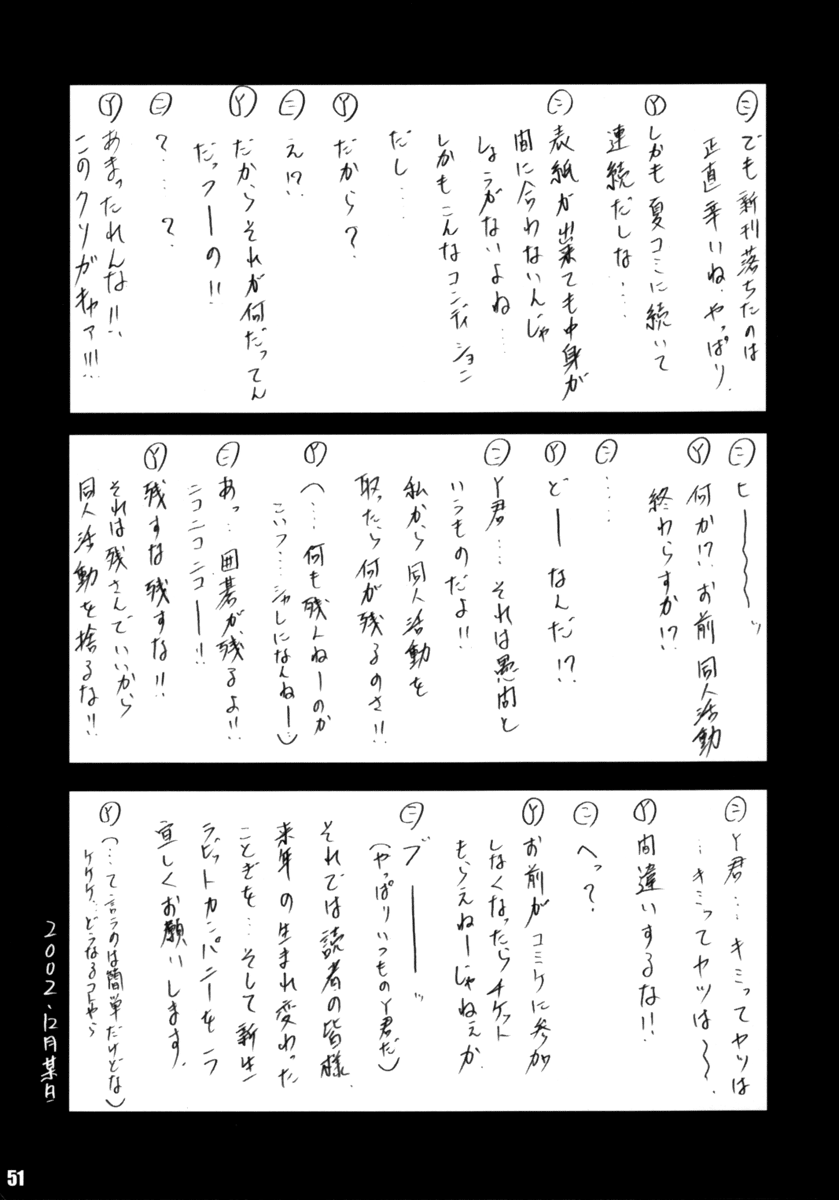 ㊁でも新刊落ちたのは
正直辛いね、やっぱり。
Ⓨしかも夏コミに続いて
連続だしな…。
㊁表紙が出来ても中身が
間に合わないんじゃ
しょうがないよね…
しかもこんなコンディション
だし…
Ⓨだから？
㊁え!?
Ⓨだからそれが何だってん
だっつーの!!
㊁？…？
Ⓨあまったれんな!!
このクソガキャァ!!!
㊁ヒー〜〜〜ッ
Ⓨ何か!?お前同人活動
終わらすか!?
㊁……
Ⓨどーなんだ!?
㊁Y君…それは愚問と
いうものだよ!!
私から同人活動を
取ったら何が残るのさ!!
Ⓨ(…何も残んねーのか
こいつ…シャレになんねー…)
㊁あっ…囲碁が残るよ!!
ニコニコニコー!!
Ⓨ残すな残すな!!
それは残さんでいいから
同人活動を捨るな!!
㊁Y君…キミってヤツは
…キミってヤツは〜〜。
Ⓨ間違いするな!!
㊁へっ？
Ⓨお前がコミケに参加
しなくなったらチケット
もらえねーじゃねぇか。
㊁ブーーーッ
(やっぱりいつものY君だ)
それでは読者の皆様
来年の生まれ変わった
ことぶきを…そして新生
ラビットカンパニーをう
宜しくお願いします。
Ⓨ(…て言うのは簡単だけどな)
ケケケ…どうなるコトやら
2002、12月某日
51